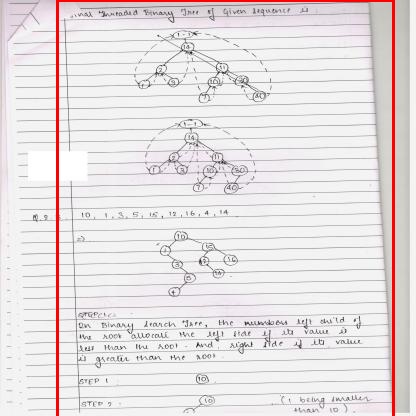 inal Threaded Binary Tree of Given Sequence is
1-1
14
2 11
1 3 10 30
7 40
1-1
14
2 11
1 3 10 30
7 40
10, 1, 3, 5, 15, 12, 16, 4, 14
=>
10
1 15
3 12 16
5 14
4
In Binary Search Tree, the numbers left child of
the root allocate the left side if its value is
less than the root. And right side if its value
is greater than the root.
STEP 1 10
STEP 2 10 (1 being smaller
than 10).